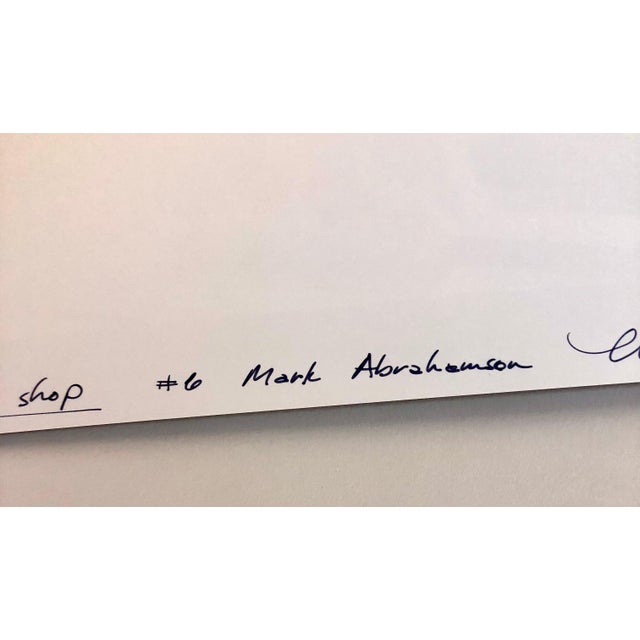 shop #6 Mark Abrahamson